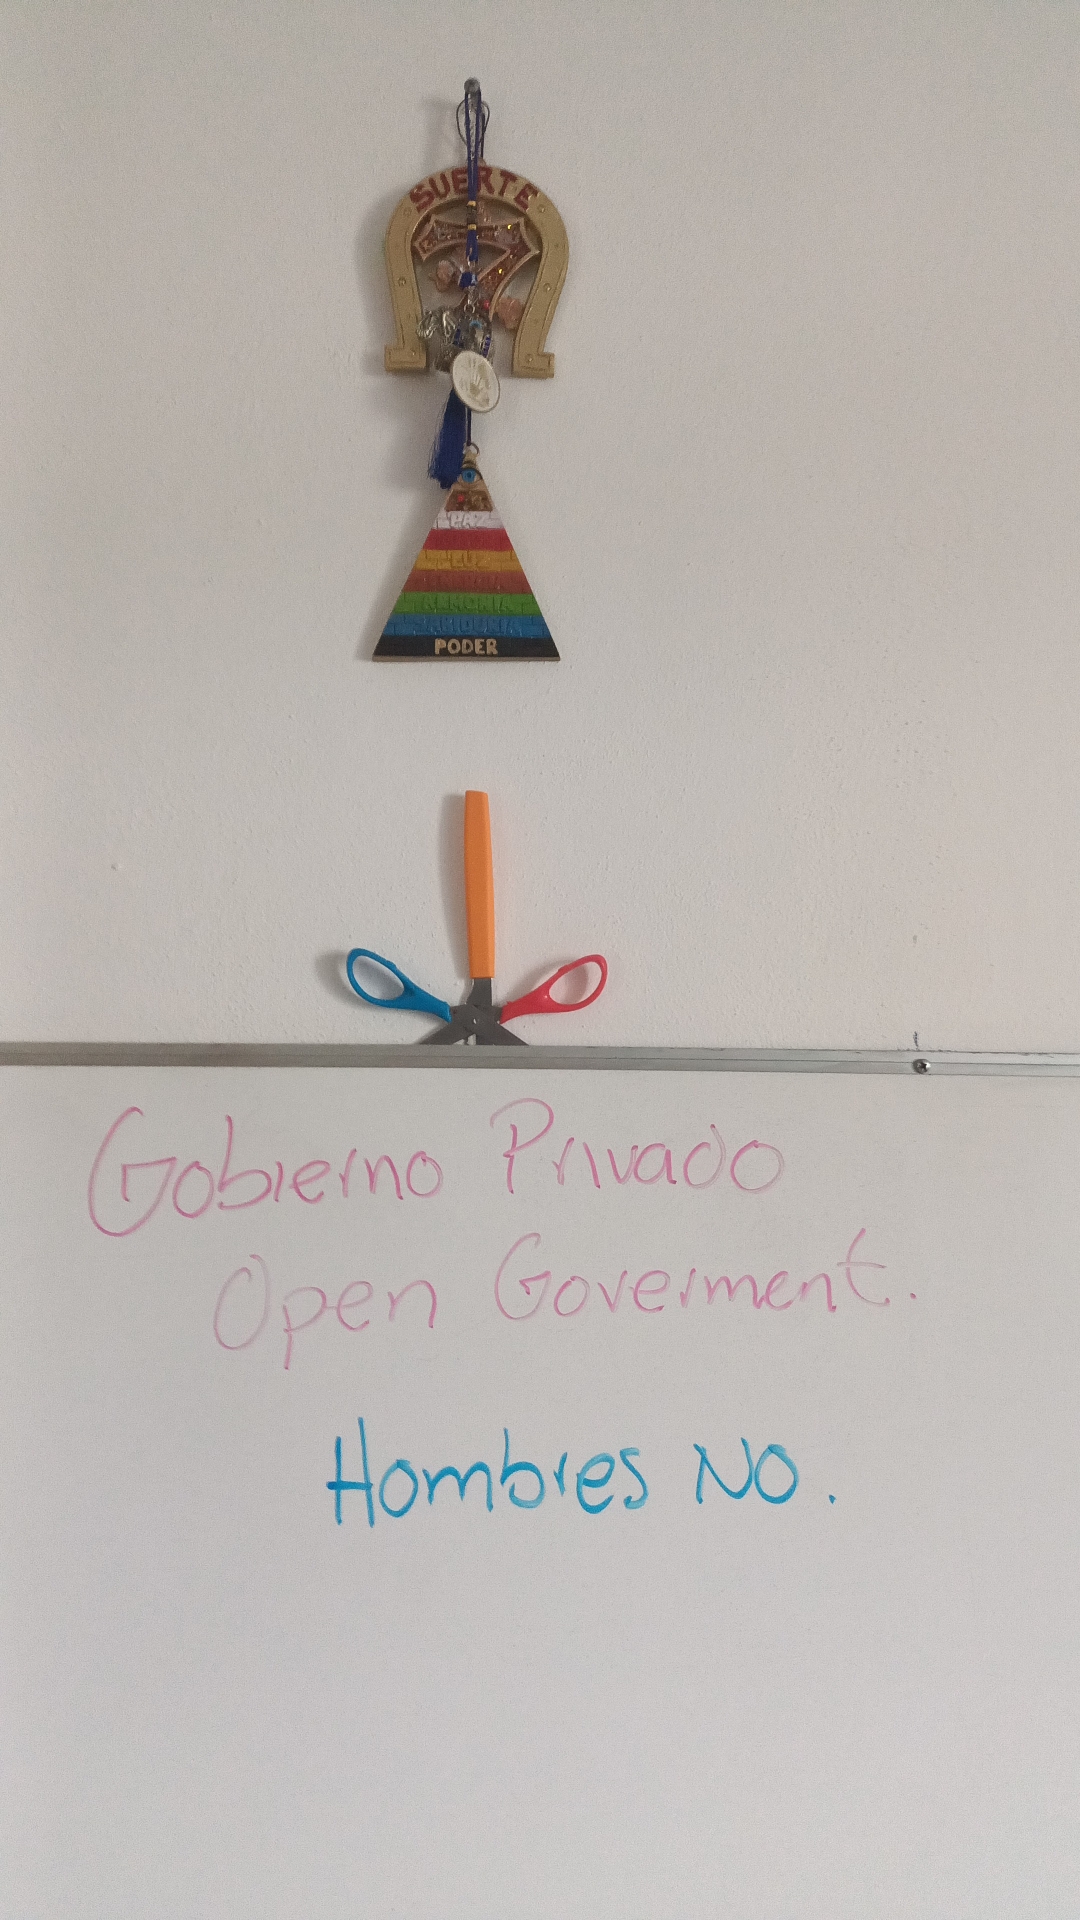 SUERTE
PAZ
LUZ
ARMONIA
SABIDURIA
PODER
Gobierno Privado
Open Goverment.
Hombres NO.